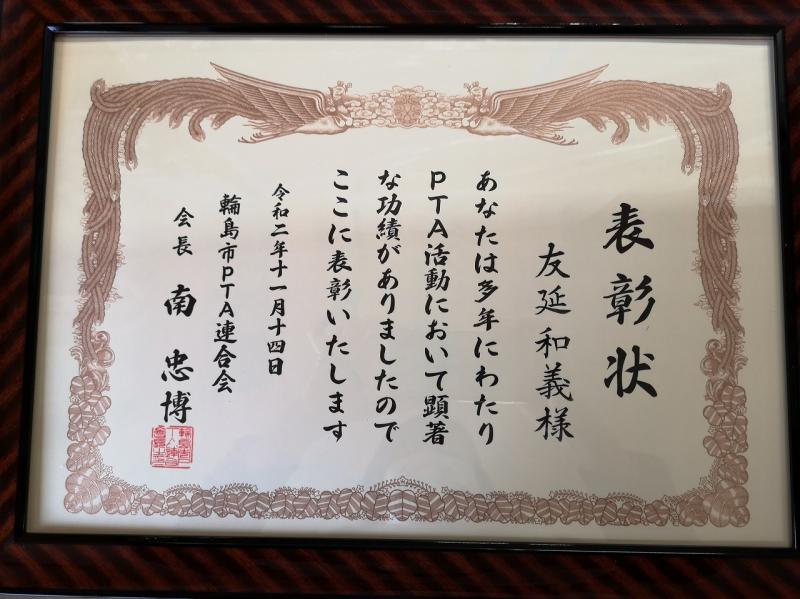 表彰状
友延和義様
あなたは多年にわたり
PTA活動において顕著
な功績がありましたので
ここに表彰いたします
令和二年十一月十四日
輪島市PTA連合会
会長 南忠博